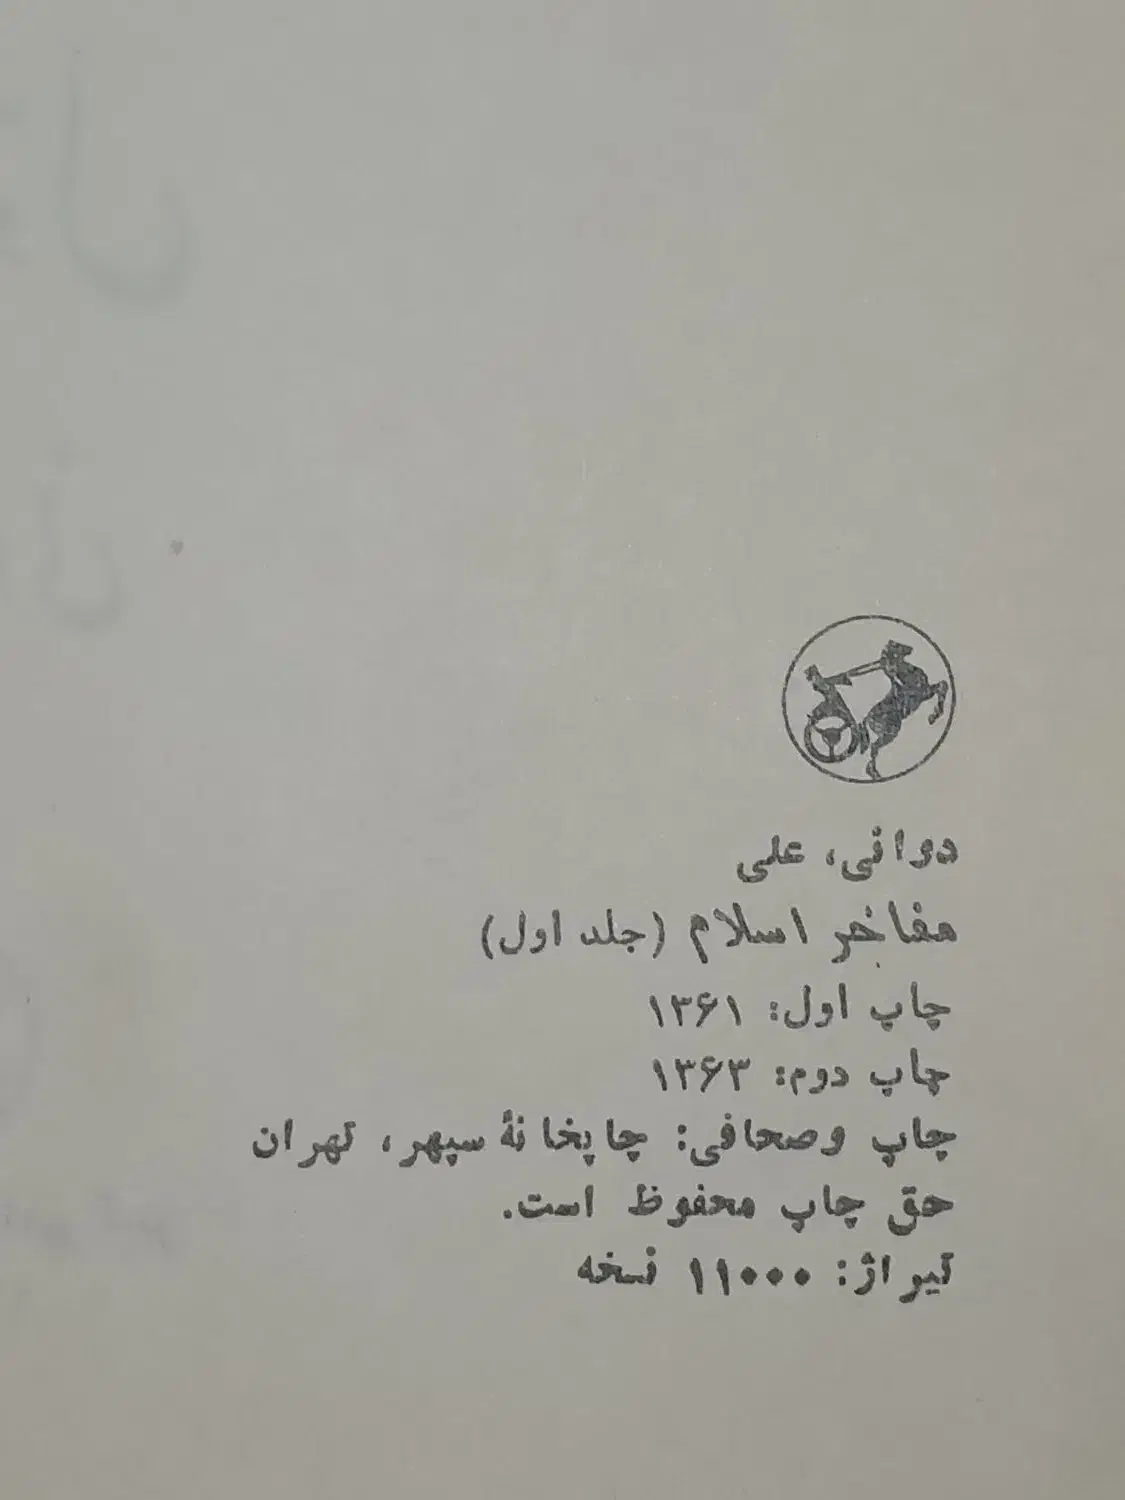 دوانی، علی
مفاخر اسلام (جلد اول)
چاپ اول: ۱۳۶۱
چاپ دوم: ۱۳۶۳
چاپ وصحافی: چاپخانهٔ سپهر، تهران
حق چاپ محفوظ است.
تیراژ: ۱۱۰۰۰ نسخه